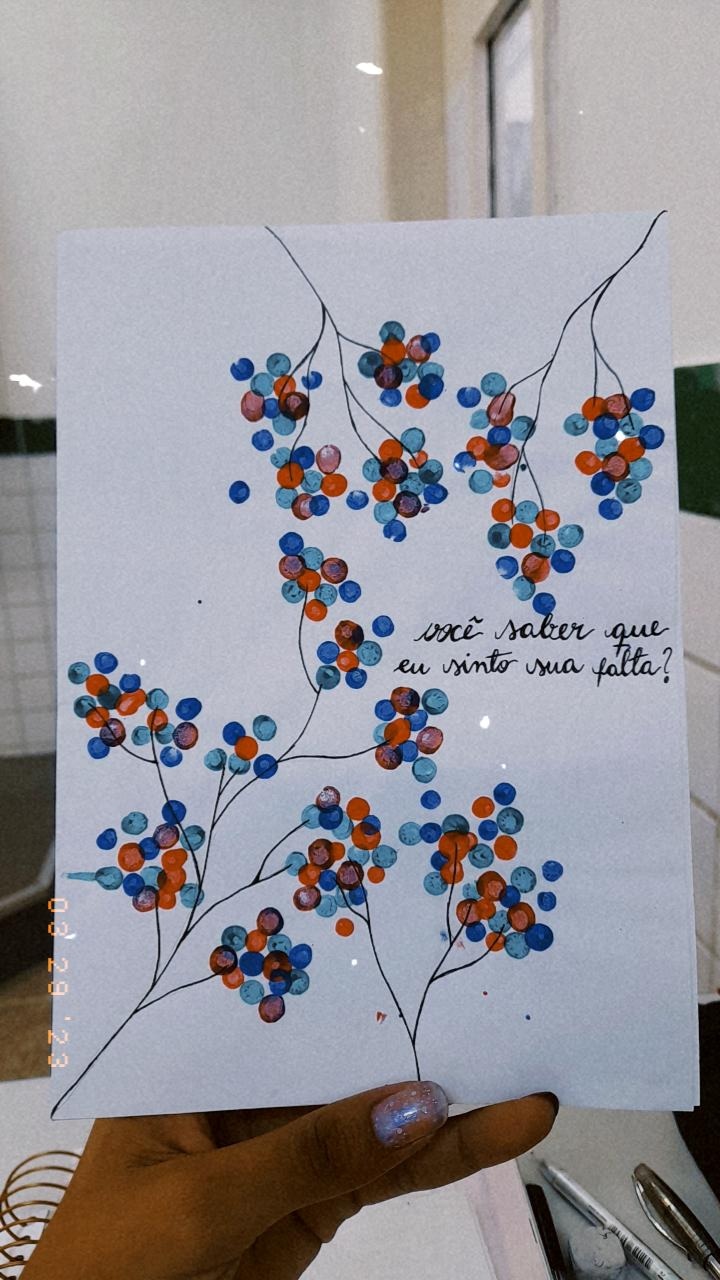 você saber que
eu sinto sua falta?
03 29 '23